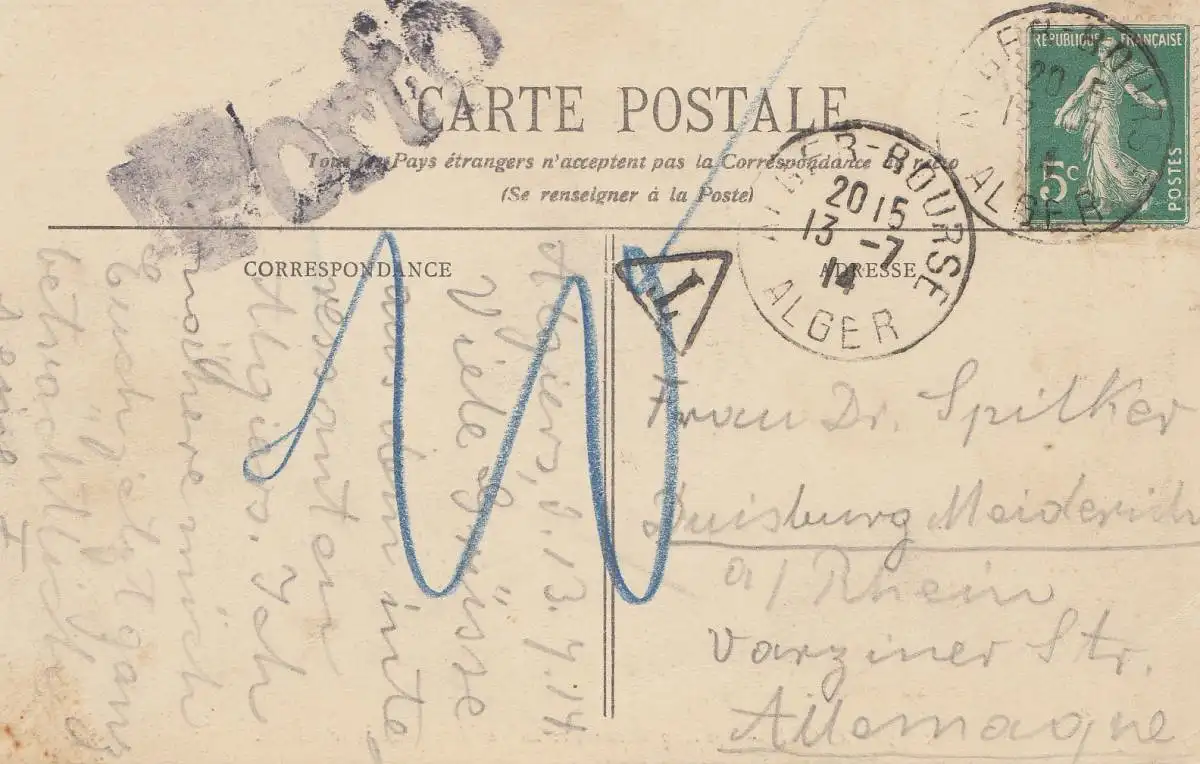 Porto
CARTE POSTALE
Tous les Pays étrangers n'acceptent pas la Correspondance au recto
(Se renseigner à la Poste)
RÉPUBLIQUE FRANÇAISE
5c
POSTES
ALGER-BOURSE
20 15
13 -7
14
ALGER
ALGER-BOURSE
20 15
13 -7
14
ALGER
T
CORRESPONDANCE
ADRESSE
Algier, d. 13.7.14.
Viele Grüsse
aus dem inte-
ressanten
Algier. Ich
nähere mich
Euch jetzt ganz
beträchtlich
Frau Dr. Spilker
Duisburg Meiderich
a/ Rhein
Varziner Str.
Allemagne